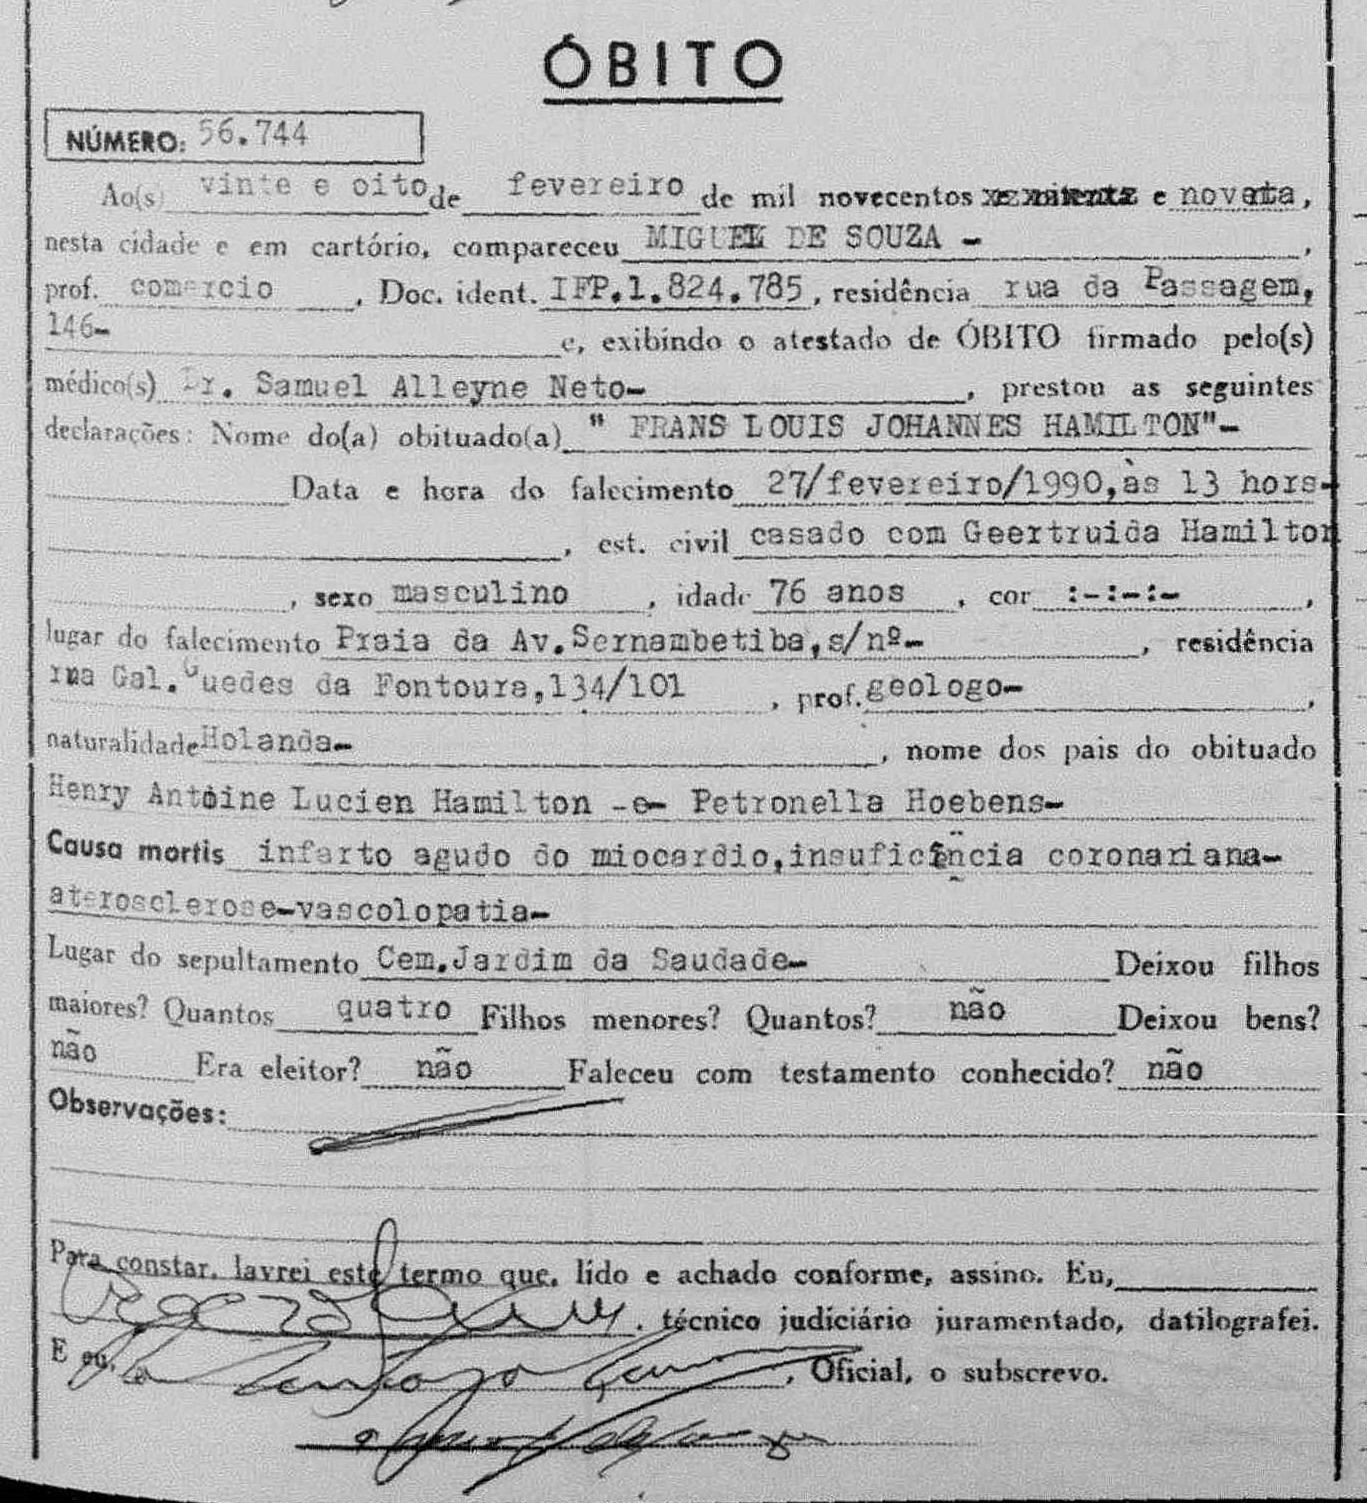 ÓBITO
NÚMERO: 56.744
Ao(s) vinte e oito de fevereiro de mil novecentos e noveta,
nesta cidade e em cartório, compareceu MIGUEL DE SOUZA -,
prof. comercio, Doc. ident. IFP.1.824.785, residência rua da Passagem,
146- e, exibindo o atestado de ÓBITO firmado pelo(s)
médico(s) Dr. Samuel Alleyne Neto-, prestou as seguintes
declarações: Nome do(a) obituado(a) " FRANS LOUIS JOHANNES HAMILTON"-
Data e hora do falecimento 27/fevereiro/1990,às 13 hors-
, est. civil casado com Geertruida Hamilton
, sexo masculino, idade 76 anos, cor :-:-:-,
lugar do falecimento Praia da Av.Sernambetiba,s/nº-, residência
rua Gal.Guedes da Fontoura,134/101, prof. geologo-,
naturalidade Holanda-, nome dos pais do obituado
Henry Antoine Lucien Hamilton -e- Petronella Hoebens-
Causa mortis infarto agudo do miocardio,insuficência coronariana-
aterosclerose-vascolopatia-
Lugar do sepultamento Cem.Jardim da Saudade- Deixou filhos
maiores? Quantos quatro Filhos menores? Quantos? não Deixou bens?
não Era eleitor? não Faleceu com testamento conhecido? não
Observações:
Para constar, lavrei este termo que, lido e achado conforme, assino. Eu,
, técnico judiciário juramentado, datilografei.
E eu, , Oficial, o subscrevo.